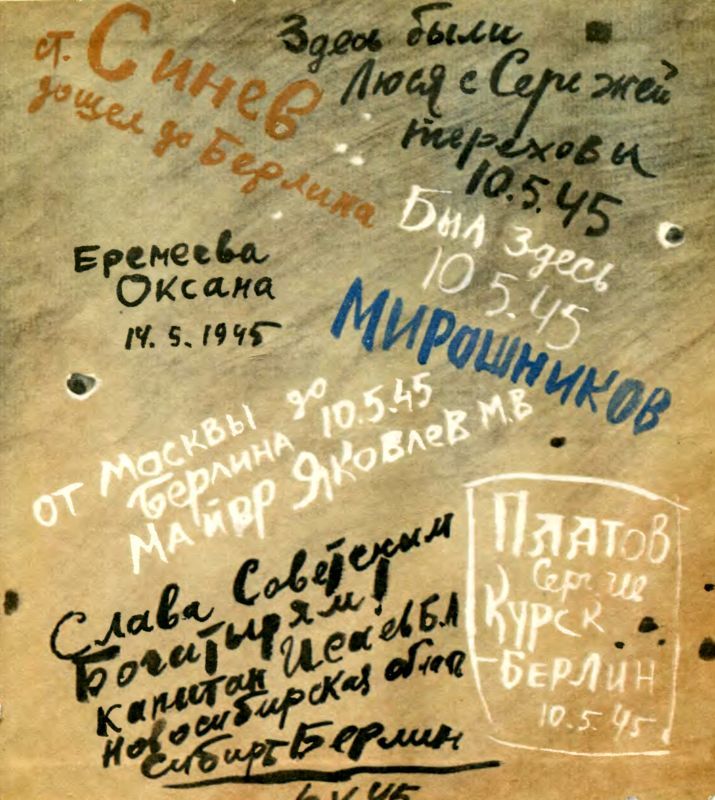 ст. Синев
дошел до Берлина
Здесь были
Люся с Сережей
Тереховы
10.5.45
Был здесь
10 5.45
Мирошников
Еремеева
Оксана
14. 5. 1945
от Москвы до
Берлина 10.5.45
майор Яковлев М.В
Слава Советским
Богатырям!
капитан Исаев Б.А
Новосибирская
Сибирь Берлин
Платов
Сергей
Курск
-Берлин
10.5.45